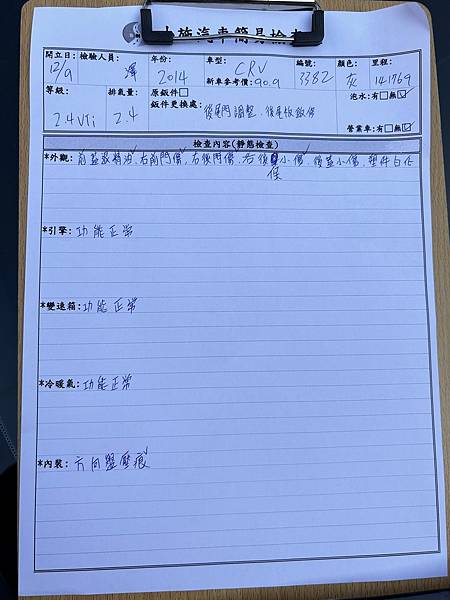 小施汽車簡易檢查
開立日: 檢驗人員: 年份: 車型: CRV 編號: 顏色: 里程:
12/9 澤 2014 新車參考價: 90.9 3382 灰 141769
等級: 排氣量: 原鈑件□ 泡水:有□無☑
2.4 VTi 2.4 鈑件更換處: 後尾門調整、後尾板鈑修 營業車:有□無☑
檢查內容(靜態檢查)
*外觀: 前蓋掀補油,右前門傷,右後門傷,右後小傷,後蓋小傷,塑件白化
保
*引擎: 功能正常
*變速箱: 功能正常
*冷暖氣: 功能正常
*內裝: 方向盤壓痕